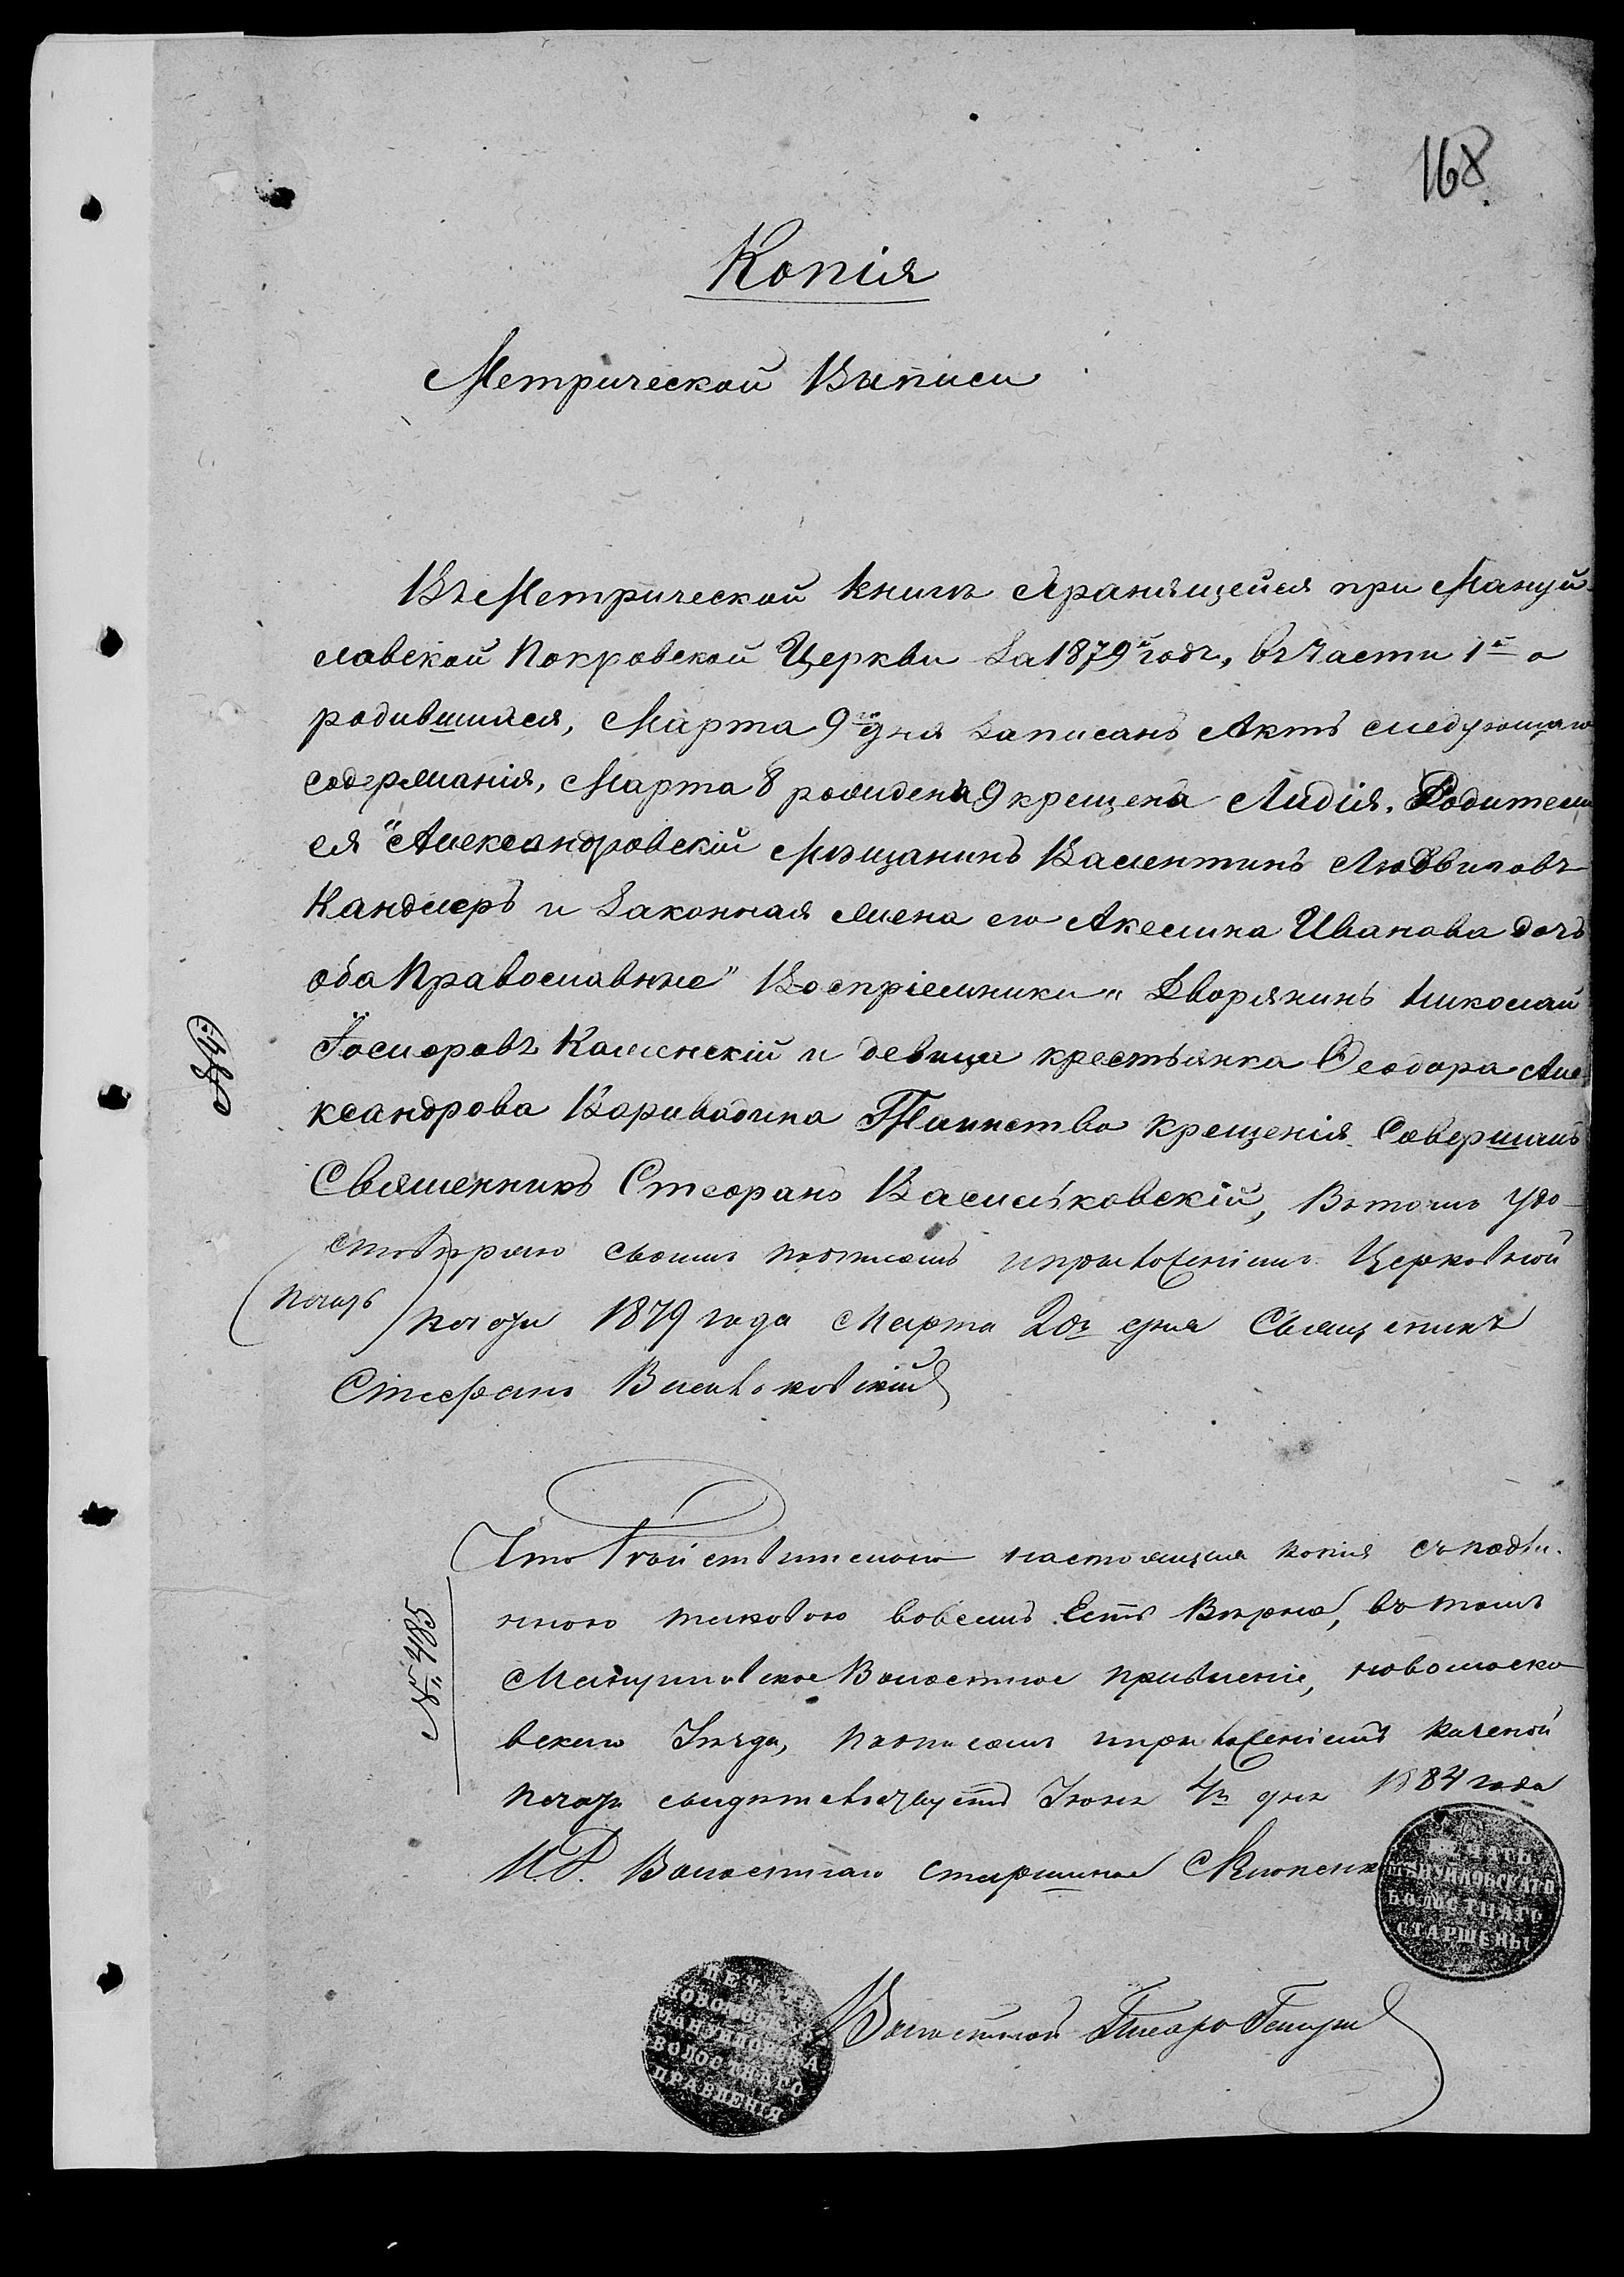 168
Копія
Метрической Выписи
Въ Метрической книгѣ хранящейся при Мануй-
ловской Покровской Церкви за 1879й годъ, въ части 1й о
родившихся, Марта 9го дня записанъ Актъ следующаго
содержанія, Марта 8 рождена 9 крещена Лидія. Родители
ея "Александровскій Мѣщанинъ Валентинъ Людвиговъ
Кандлеръ и законная жена его Акелина Иванова дочь
оба Православные" Воспріемники " Дворянинъ Николай
Каменскій и девица крестьянка Феодора Але-
ксандрова Таинство крещенія Совершалъ
Священникъ Стефанъ Васильковскій, въ томъ удо-
стовѣряю своимъ подписомъ и приложеніемъ Церковной
(печать) печати 1879 года Марта 20го дня Священникъ
Стефанъ Васильковскій
№ 485
Что действительно настоящая копія съ подли-
нною таковою вовсемъ есть вѣрна, въ томъ
Мануиловское Волостное правленіе, новомоско-
вскаго Уѣзда, подписомъ и приложеніемъ казеной
печати свидѣтельствуетъ Іюня 4го дня 1884 года
И.Д. Волостнаго старшины
ПЕЧАТЬ
МАНУИЛОВСКАГО
ВОЛОСТНАГО
СТАРШЕНЫ
Волостной Писарь
ПЕЧАТЬ
НОВОМОСКОВ.
МАНУИЛОВСКА.
ВОЛОСТНАГО
ПРАВЛЕНІЯ